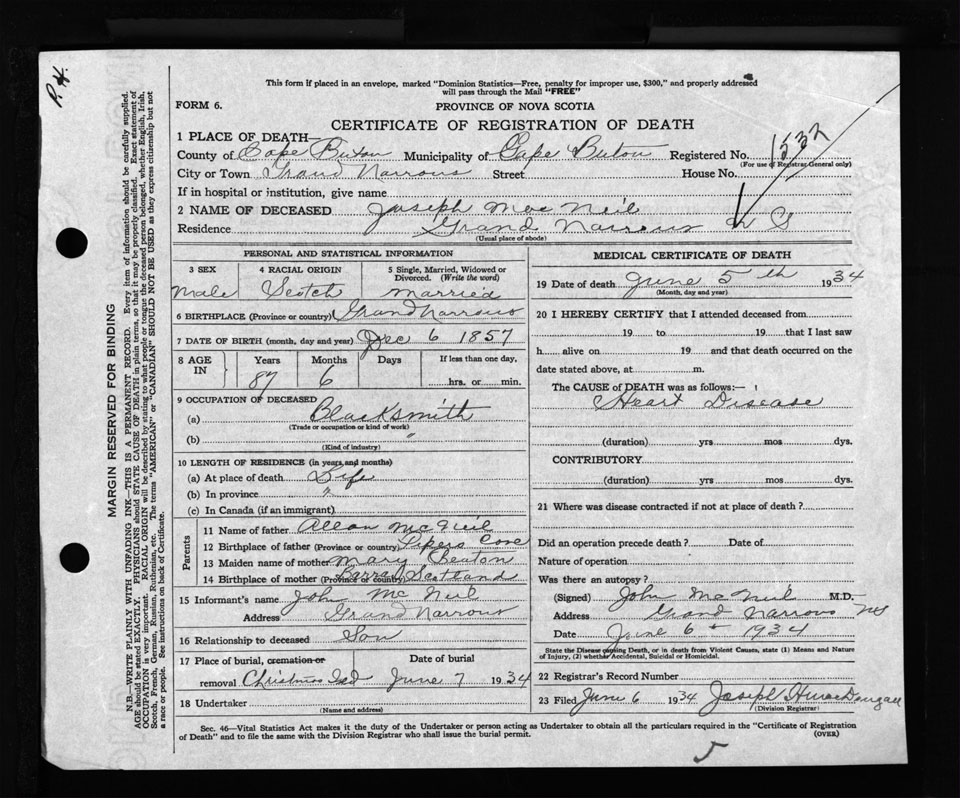 P. H.
This form if placed in an envelope, marked "Dominion Statistics—Free, penalty for improper use, $300," and properly addressed
will pass through the Mail "FREE"
FORM 6.
PROVINCE OF NOVA SCOTIA
CERTIFICATE OF REGISTRATION OF DEATH
1532
1 PLACE OF DEATH—
County of Cape Breton Municipality of Cape Breton Registered No.
(For use of Registrar General only)
City or Town Grand Narrows Street House No.
If in hospital or institution, give name
2 NAME OF DECEASED Joseph MacNeil
Residence Grand Narrows N S
(Usual place of abode)
PERSONAL AND STATISTICAL INFORMATION
3 SEX
Male
4 RACIAL ORIGIN
Scotch
5 Single, Married, Widowed or
Divorced. (Write the word)
Married
6 BIRTHPLACE (Province or country) Grand Narrows
7 DATE OF BIRTH (month, day and year) Dec 6 1857
8 AGE IN
Years
87
Months
6
Days
If less than one day,
hrs. or min.
9 OCCUPATION OF DECEASED
(a) Blacksmith
(Trade or occupation or kind of work)
(b) "
(Kind of industry)
10 LENGTH OF RESIDENCE (in years and months)
(a) At place of death Life
(b) In province "
(c) In Canada (if an immigrant)
Parents
11 Name of father Allan McNeil
12 Birthplace of father (Province or country) Pipers Cove
13 Maiden name of mother Mary Beaton
14 Birthplace of mother (Province or country) Barra Scotland
15 Informant's name John McNeil
Address Grand Narrows
16 Relationship to deceased Son
17 Place of burial, cremation or
removal Christmas Isd
Date of burial
June 7 1934
18 Undertaker
(Name and address)
MEDICAL CERTIFICATE OF DEATH
19 Date of death June 5th 1934
(Month, day and year)
20 I HEREBY CERTIFY that I attended deceased from
19 to 19 that I last saw
h alive on 19 and that death occurred on the
date stated above, at m.
The CAUSE OF DEATH was as follows:—
Heart Disease
(duration) yrs mos dys.
CONTRIBUTORY
(duration) yrs mos dys.
21 Where was disease contracted if not at place of death?
Did an operation precede death? Date of
Nature of operation
Was there an autopsy?
(Signed) John McNeil M.D.
Address Grand Narrows NS
Date June 6th 1934
State the Disease causing Death, or in death from Violent Causes, state (1) Means and Nature
of Injury, (2) whether Accidental, Suicidal or Homicidal.
22 Registrar's Record Number
23 Filed June 6 1934 Joseph H MacDougall
(Division Registrar)
Sec. 46—Vital Statistics Act makes it the duty of the Undertaker or person acting as Undertaker to obtain all the particulars required in the "Certificate of Registration
of Death" and to file the same with the Division Registrar who shall issue the burial permit.
(OVER)
5
MARGIN RESERVED FOR BINDING
N.B.—WRITE PLAINLY WITH UNFADING INK—THIS IS A PERMANENT RECORD. Every item of information should be carefully supplied.
AGE should be stated EXACTLY. PHYSICIANS should STATE CAUSE OF DEATH in plain terms, so that it may be properly classified. Exact statement of
OCCUPATION is very important. RACIAL ORIGIN will be described by stating to what people or tongue the deceased person belonged, whether English, Irish,
Scotch, French, German, Russian, Ruthenian, etc. The terms "AMERICAN" or "CANADIAN" SHOULD NOT BE USED as they express citizenship but not
a race or people. See instructions on back of Certificate.